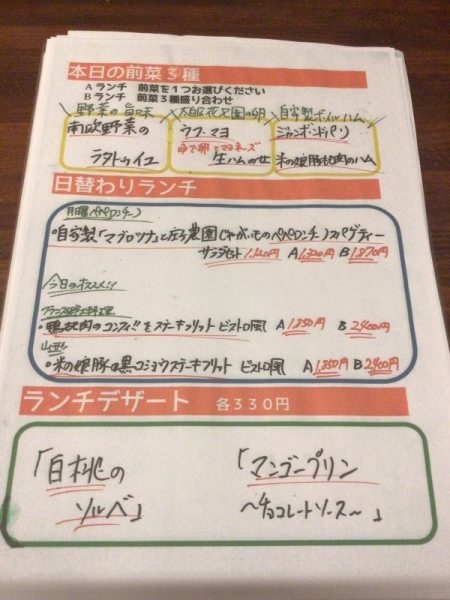 本日の前菜3種
Aランチ　前菜を1つお選びください
Bランチ　前菜3種盛り合わせ
野菜の旨味
南欧野菜の
ラタトゥイユ
花兄園の卵
ウフ・マヨ
ゆで卵とマヨネーズ
生ハムのせ
自家製ボイルハム
ジャンボン・ド・パリ
米の娘豚のハム
日替わりランチ
月曜ペペロンチーノ
・自家製「マグロツナ」と庄子農園じゃがいものペペロンチーノスパゲティー
サラダセット1,120円 A1,320円 B1,870円
今日のオススメ!!
フランス伝統料理
・鴨肉のコンフィ!!をステーキフリット ビストロ風 A1,850円 B2,400円
・米の娘豚の黒コショウステーキフリット ビストロ風 A1,850円 B2,400円
ランチデザート　各330円
「白桃の
ソルベ」
「マンゴープリン
～チョコレートソース～」